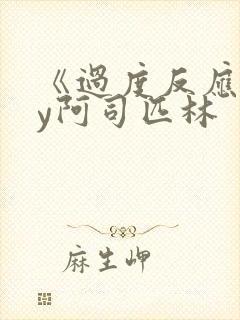 《過度反應
y阿司匹林
麻生岬